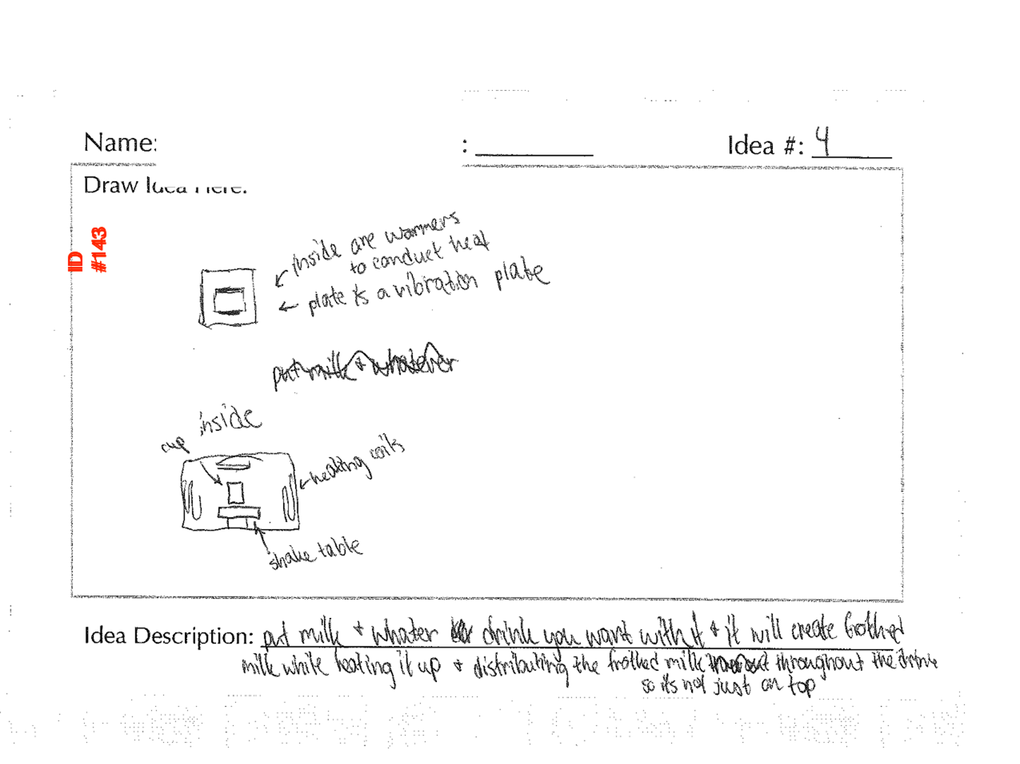 Name:
: 
Idea #: 4
Draw Idea Here:
ID #143
inside are warmers
to conduct heat
plate is a vibration plate
put milk + whatever
inside
cup
heating coils
shake table
Idea Description: put milk + whater drink you want with it + it will create frothed
milk while heating it up + distributing the frothed milk throughout the drink
so it's not just on top